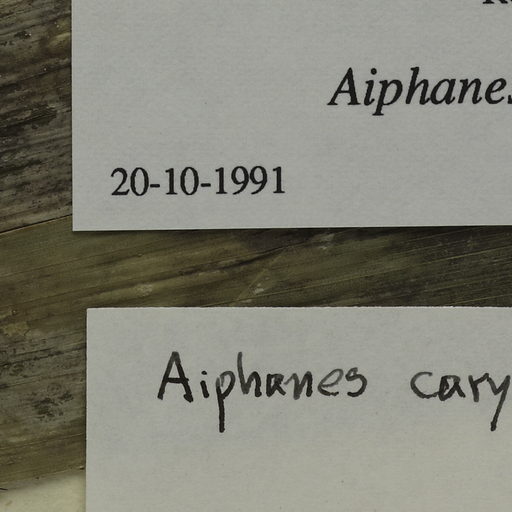 Aiphanes
20-10-1991
Aiphanes cary